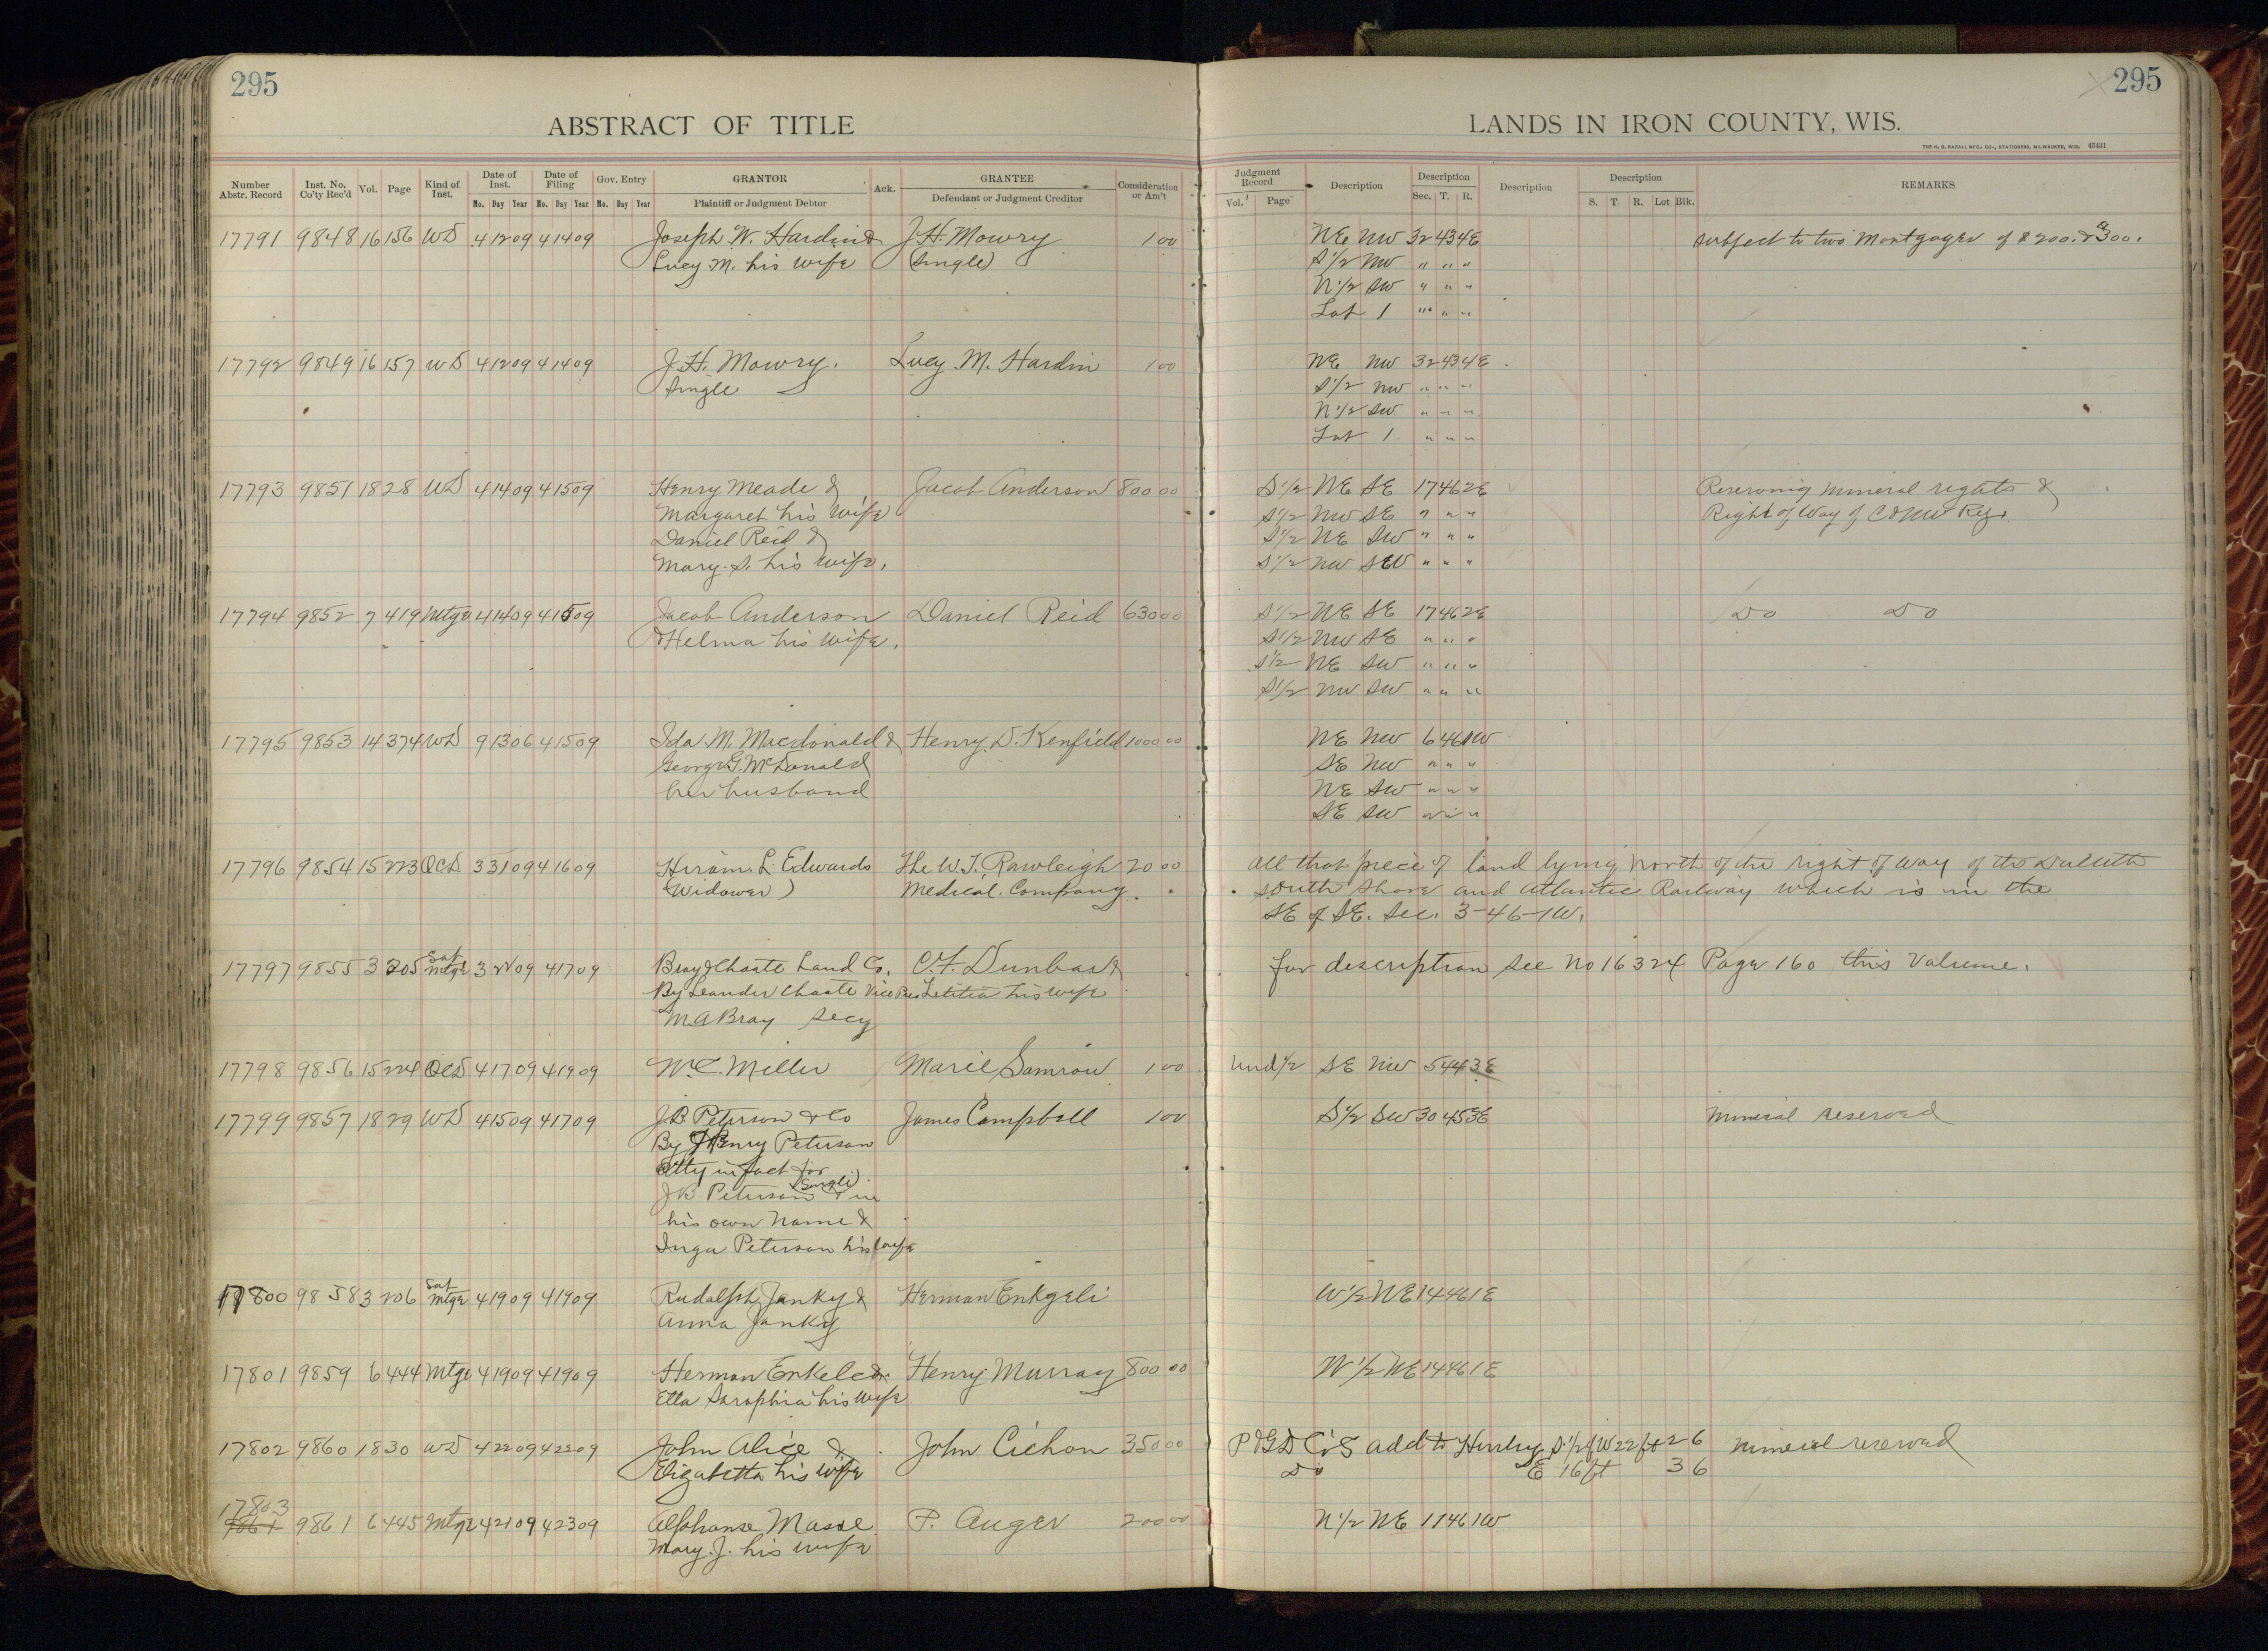 295
ABSTRACT OF TITLE
Number Abstr. Record Inst. No. Co'ty Rec'd Vol. Page Kind of Inst. Date of Inst. Mo. Day Year Date of Filing Mo. Day Year Gov. Entry Mo. Day Year GRANTOR Plaintiff or Judgment Debtor Ack. GRANTEE Defendant or Judgment Creditor Consideration or Am't
17791 9848 16 156 WD 4 12 09 4 14 09 Joseph W. Hardin & J.H. Mowry 1 00
Lucy M. his wife (Single)
17792 9849 16 157 WD 4 12 09 4 14 09 J.H. Mowry. Lucy M. Hardin 1 00
Single
17793 9851 18 28 WD 4 14 09 4 15 09 Henry Meade & Jacob Anderson 800 00
Margaret his wife
Daniel Reid &
Mary. S. his wife.
17794 9852 7 419 Mtge 4 14 09 4 15 09 Jacob Anderson Daniel Reid 630 00
& Helma his wife.
17795 9853 14 374 WD 9 13 06 4 15 09 Ida M. Macdonald & Henry D. Kenfield 1000 00
George G. McDonald
her husband
17796 9854 15 223 QCD 3 31 09 4 16 09 Hiram L Edwards The W.T. Rawleigh 20 00
(Widower) Medical Company.
17797 9855 3 205 Sat Mtge 3 22 09 4 17 09 Bray & Choate Land Co. C.F. Dunbar &
By Leander Choate Vice Pres Letitia his wife
M.A Bray Secy
17798 9856 15 224 QCD 4 17 09 4 19 09 W.C. Miller Marie Samrow 1 00
17799 9857 18 29 WD 4 15 09 4 17 09 J.B. Peterson & Co James Campbell 1 00
By J Henry Peterson
Atty in fact for
J B Peterson (Single) & in
his own name &
Inga Peterson his wife
17800 9858 3 206 Sat Mtge 4 19 09 4 19 09 Rudolph Janky & Herman Enkgeli
Anna Janky
17801 9859 6 444 Mtge 4 19 09 4 19 09 Herman Enkele & Henry Murray 800 00
Etta Saraphia his wife
17802 9860 18 30 WD 4 22 09 4 22 09 John Alice & John Cichon 350 00
Elizabetta his wife
17803
9861 9861 6 445 Mtge 4 21 09 4 23 09 Alphonse Masse P. Auger 200 00
Mary. J. his wife
295
LANDS IN IRON COUNTY, WIS.
THE H. G. RAZALL MFG. CO., STATIONERS, MILWAUKEE, WIS. 45431
Judgment Record Vol. Page Description Description Sec. T. R. Description Description S. T. R. Lot Blk. REMARKS
NE NW 32 43 4E subject to two Mortgages of $200. & 300.
S 1/2 NW " " "
N 1/2 SW " " "
Lot 1 " " "
NE NW 32 43 4E
S 1/2 NW " " "
N 1/2 SW " " "
Lot 1 " " "
S 1/2 NE SE 17 46 2E Reserving mineral rights &
S 1/2 NW SE " " " Right of Way of C & NW Ry.
S 1/2 NE SW " " "
S 1/2 NW SW " " "
S 1/2 NE SE 17 46 2E Do Do
S 1/2 NW SE " " "
S 1/2 NE SW " " "
S 1/2 NW SW " " "
NE NW 6 46 1W
SE NW " " "
NE SW " " "
SE SW " " "
All that piece of land lying north of the right of way of the Duluth
South Shore and Atlantic Railway which is in the
SE of SE. Sec. 3-46-1W.
for description see No 16324 Page 160 this Volume.
Und 1/2 SE NW 5 44 3E
S 1/2 SW 30 45 3E Mineral reserved
W 1/2 NE 14 46 1E
W 1/2 NE 14 46 1E
P & G D Co's add to Hurley S 1/2 of W 22 ft 2 6 Mineral reserved
Do E 16 ft 3 6
N 1/2 NE 17 46 1W